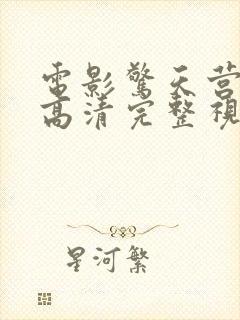 電影驚天营
高清完整視
星河繁